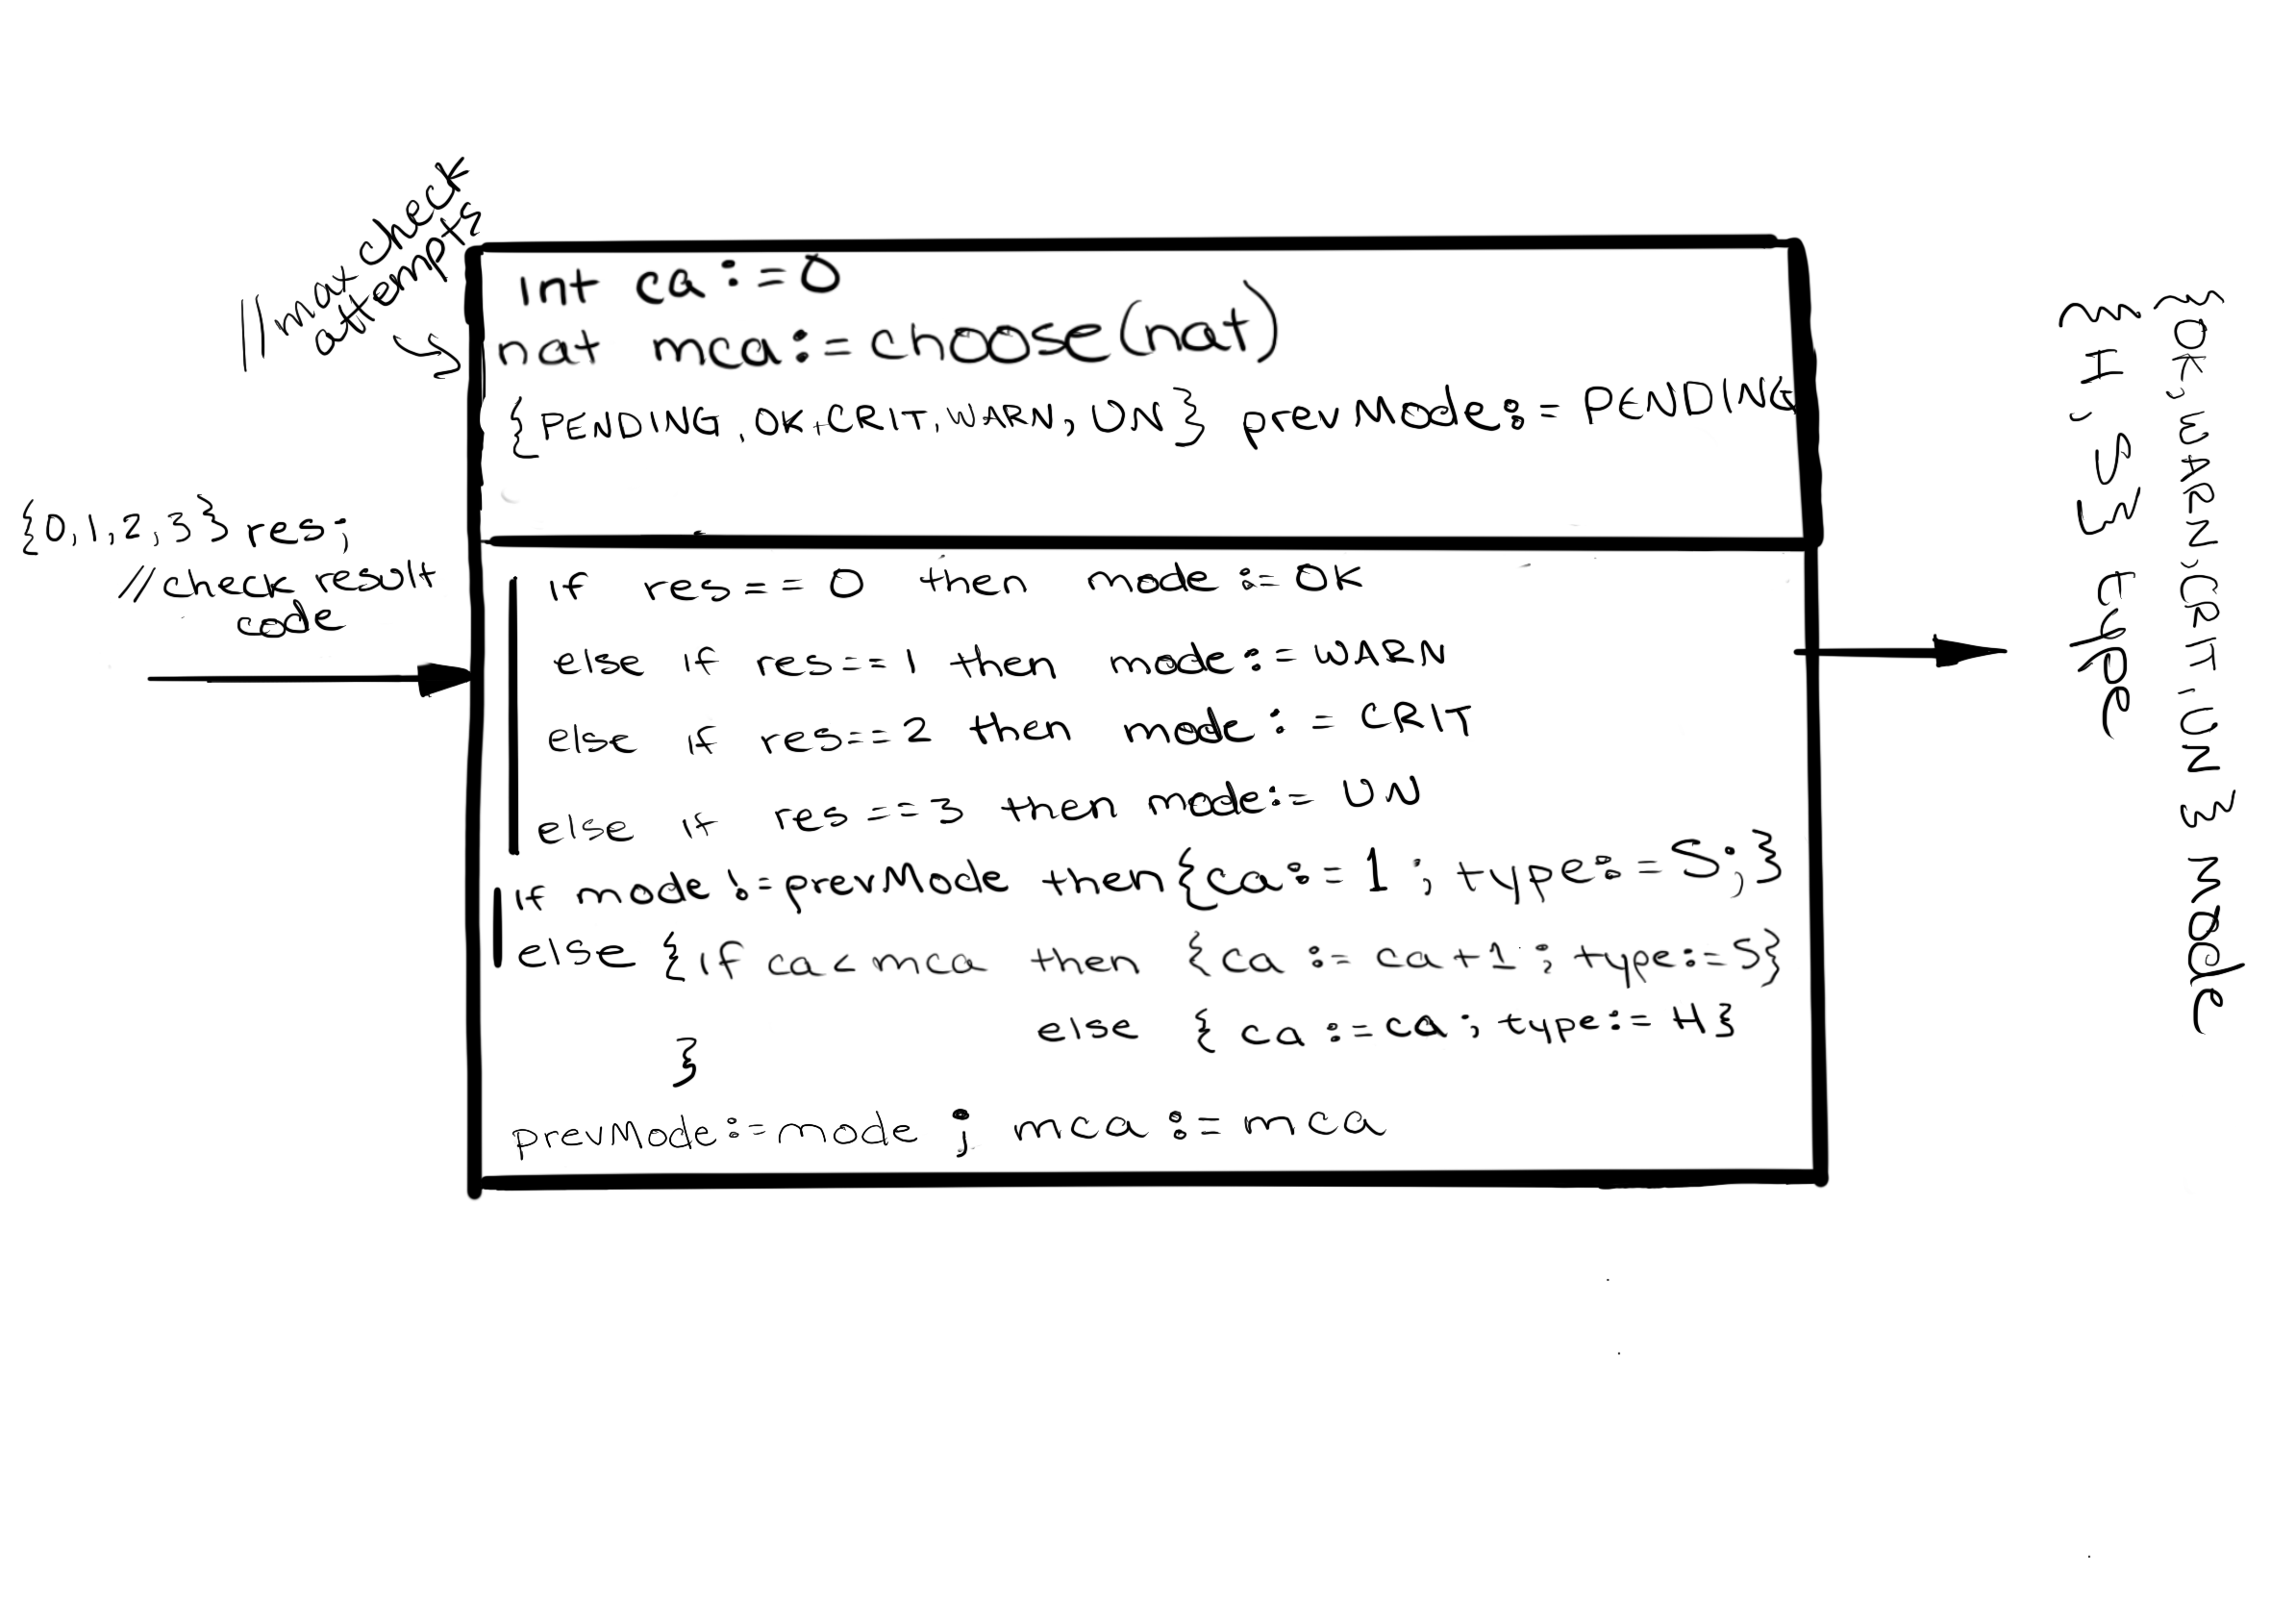 //mat check
attempts
int ca := 0
nat mca := choose(nat)
{PENDING, OK, CRIT, WARN, UN} prevMode := PENDING
{0,1,2,3} res;
//check result
code
if res == 0 then mode := OK
else if res == 1 then mode := WARN
else if res == 2 then mode := CRIT
else if res == 3 then mode := UN
if mode != prevMode then {ca := 1 ; type := S;}
else {if ca < mca then {ca := ca+1 ; type := S}
else { ca := ca ; type := H}
}
prevMode := mode ; mca := mca
{OK, WARN, CRIT, UN} mode
{H, S} type